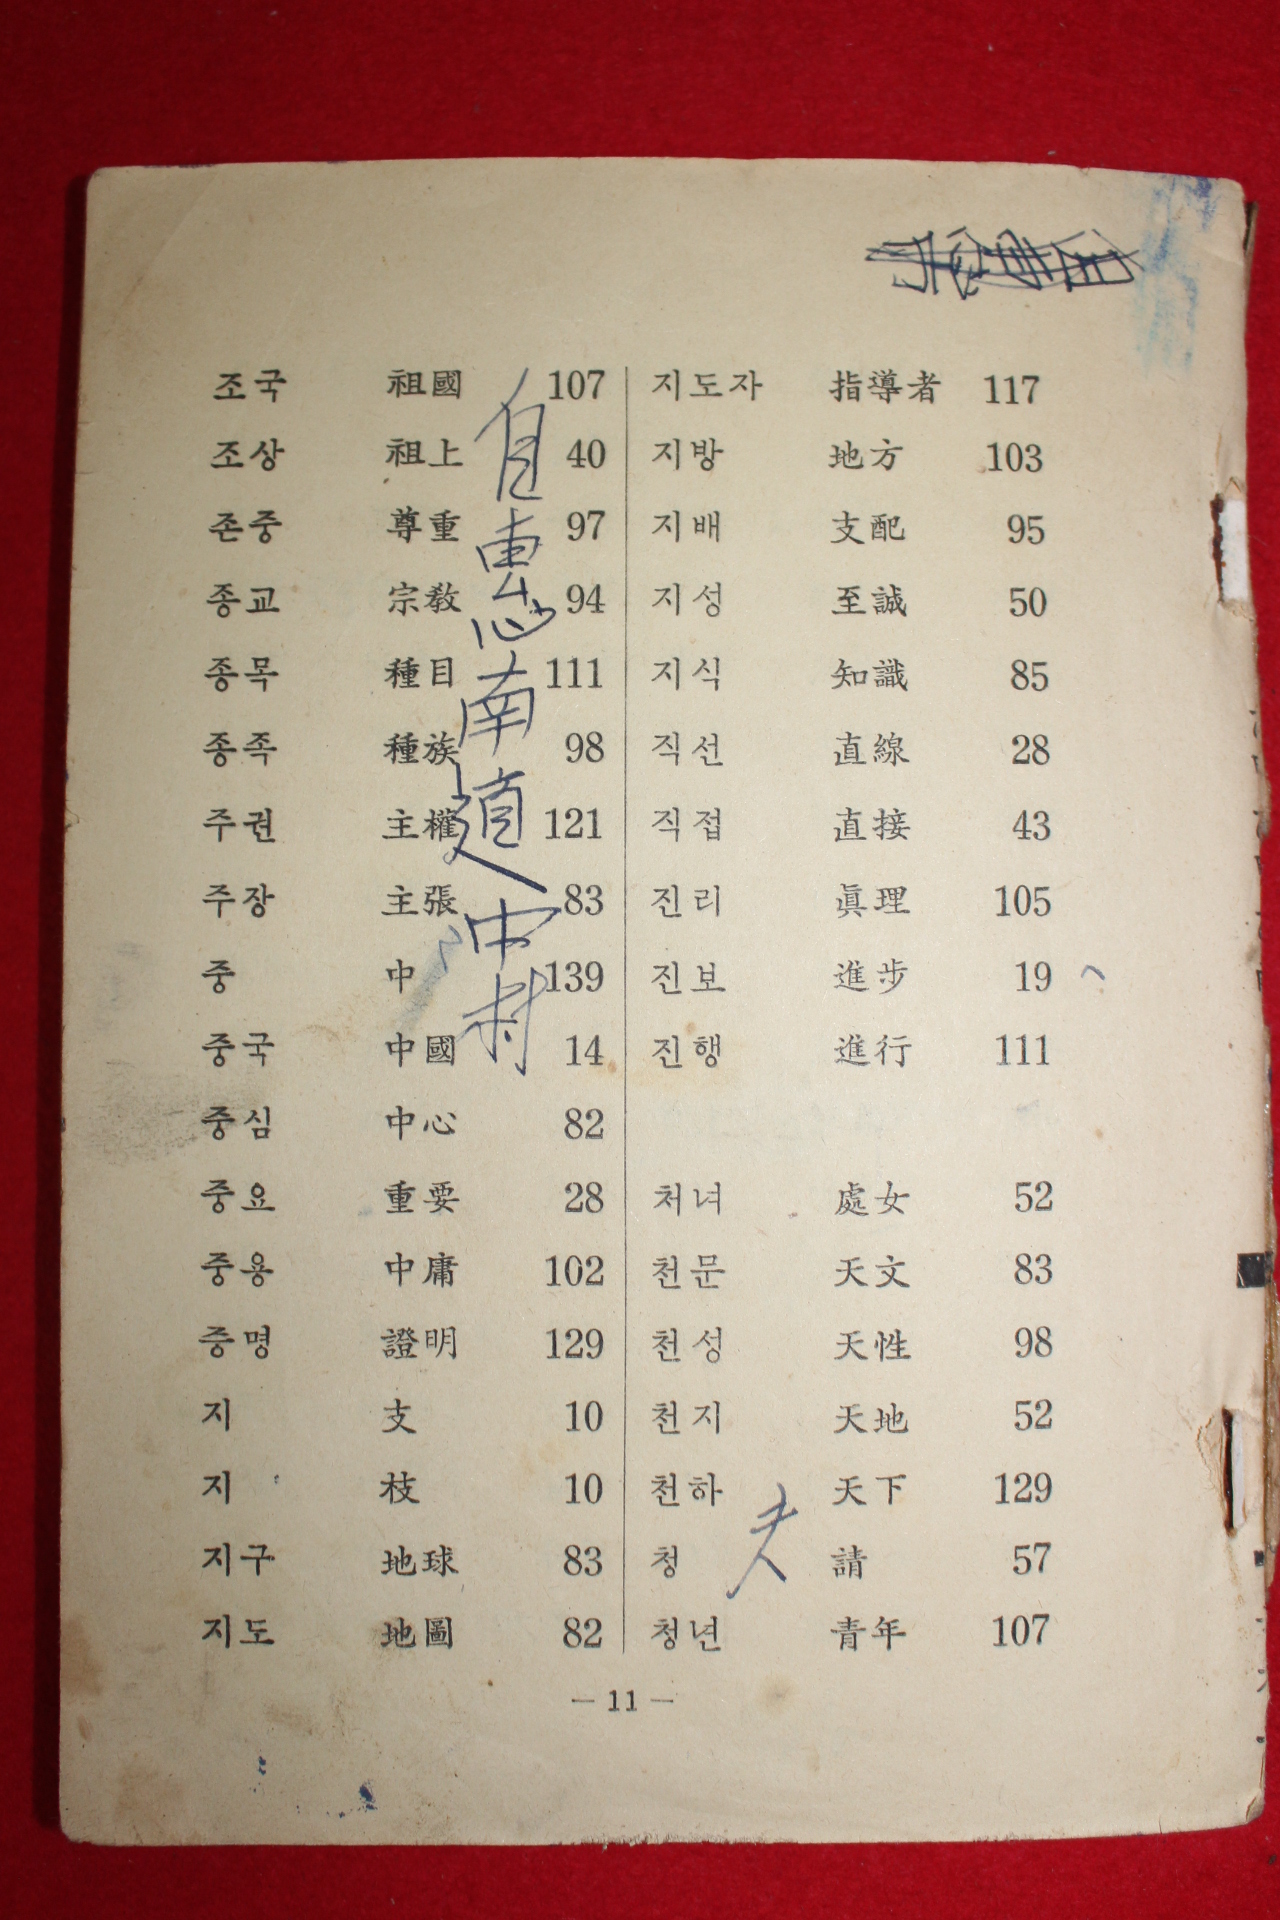 조국 祖國 107
조상 祖上 40
존중 尊重 97
종교 宗敎 94
종목 種目 111
종족 種族 98
주권 主權 121
주장 主張 83
중 中 139
중국 中國 14
중심 中心 82
중요 重要 28
중용 中庸 102
증명 證明 129
지 支 10
지 枝 10
지구 地球 83
지도 地圖 82
自惠南道中村
지도자 指導者 117
지방 地方 103
지배 支配 95
지성 至誠 50
지식 知識 85
직선 直線 28
직접 直接 43
진리 眞理 105
진보 進步 19
진행 進行 111
처녀 處女 52
천문 天文 83
천성 天性 98
천지 天地 52
천하 天下 129
청 請 57
청년 靑年 107
— 11 —